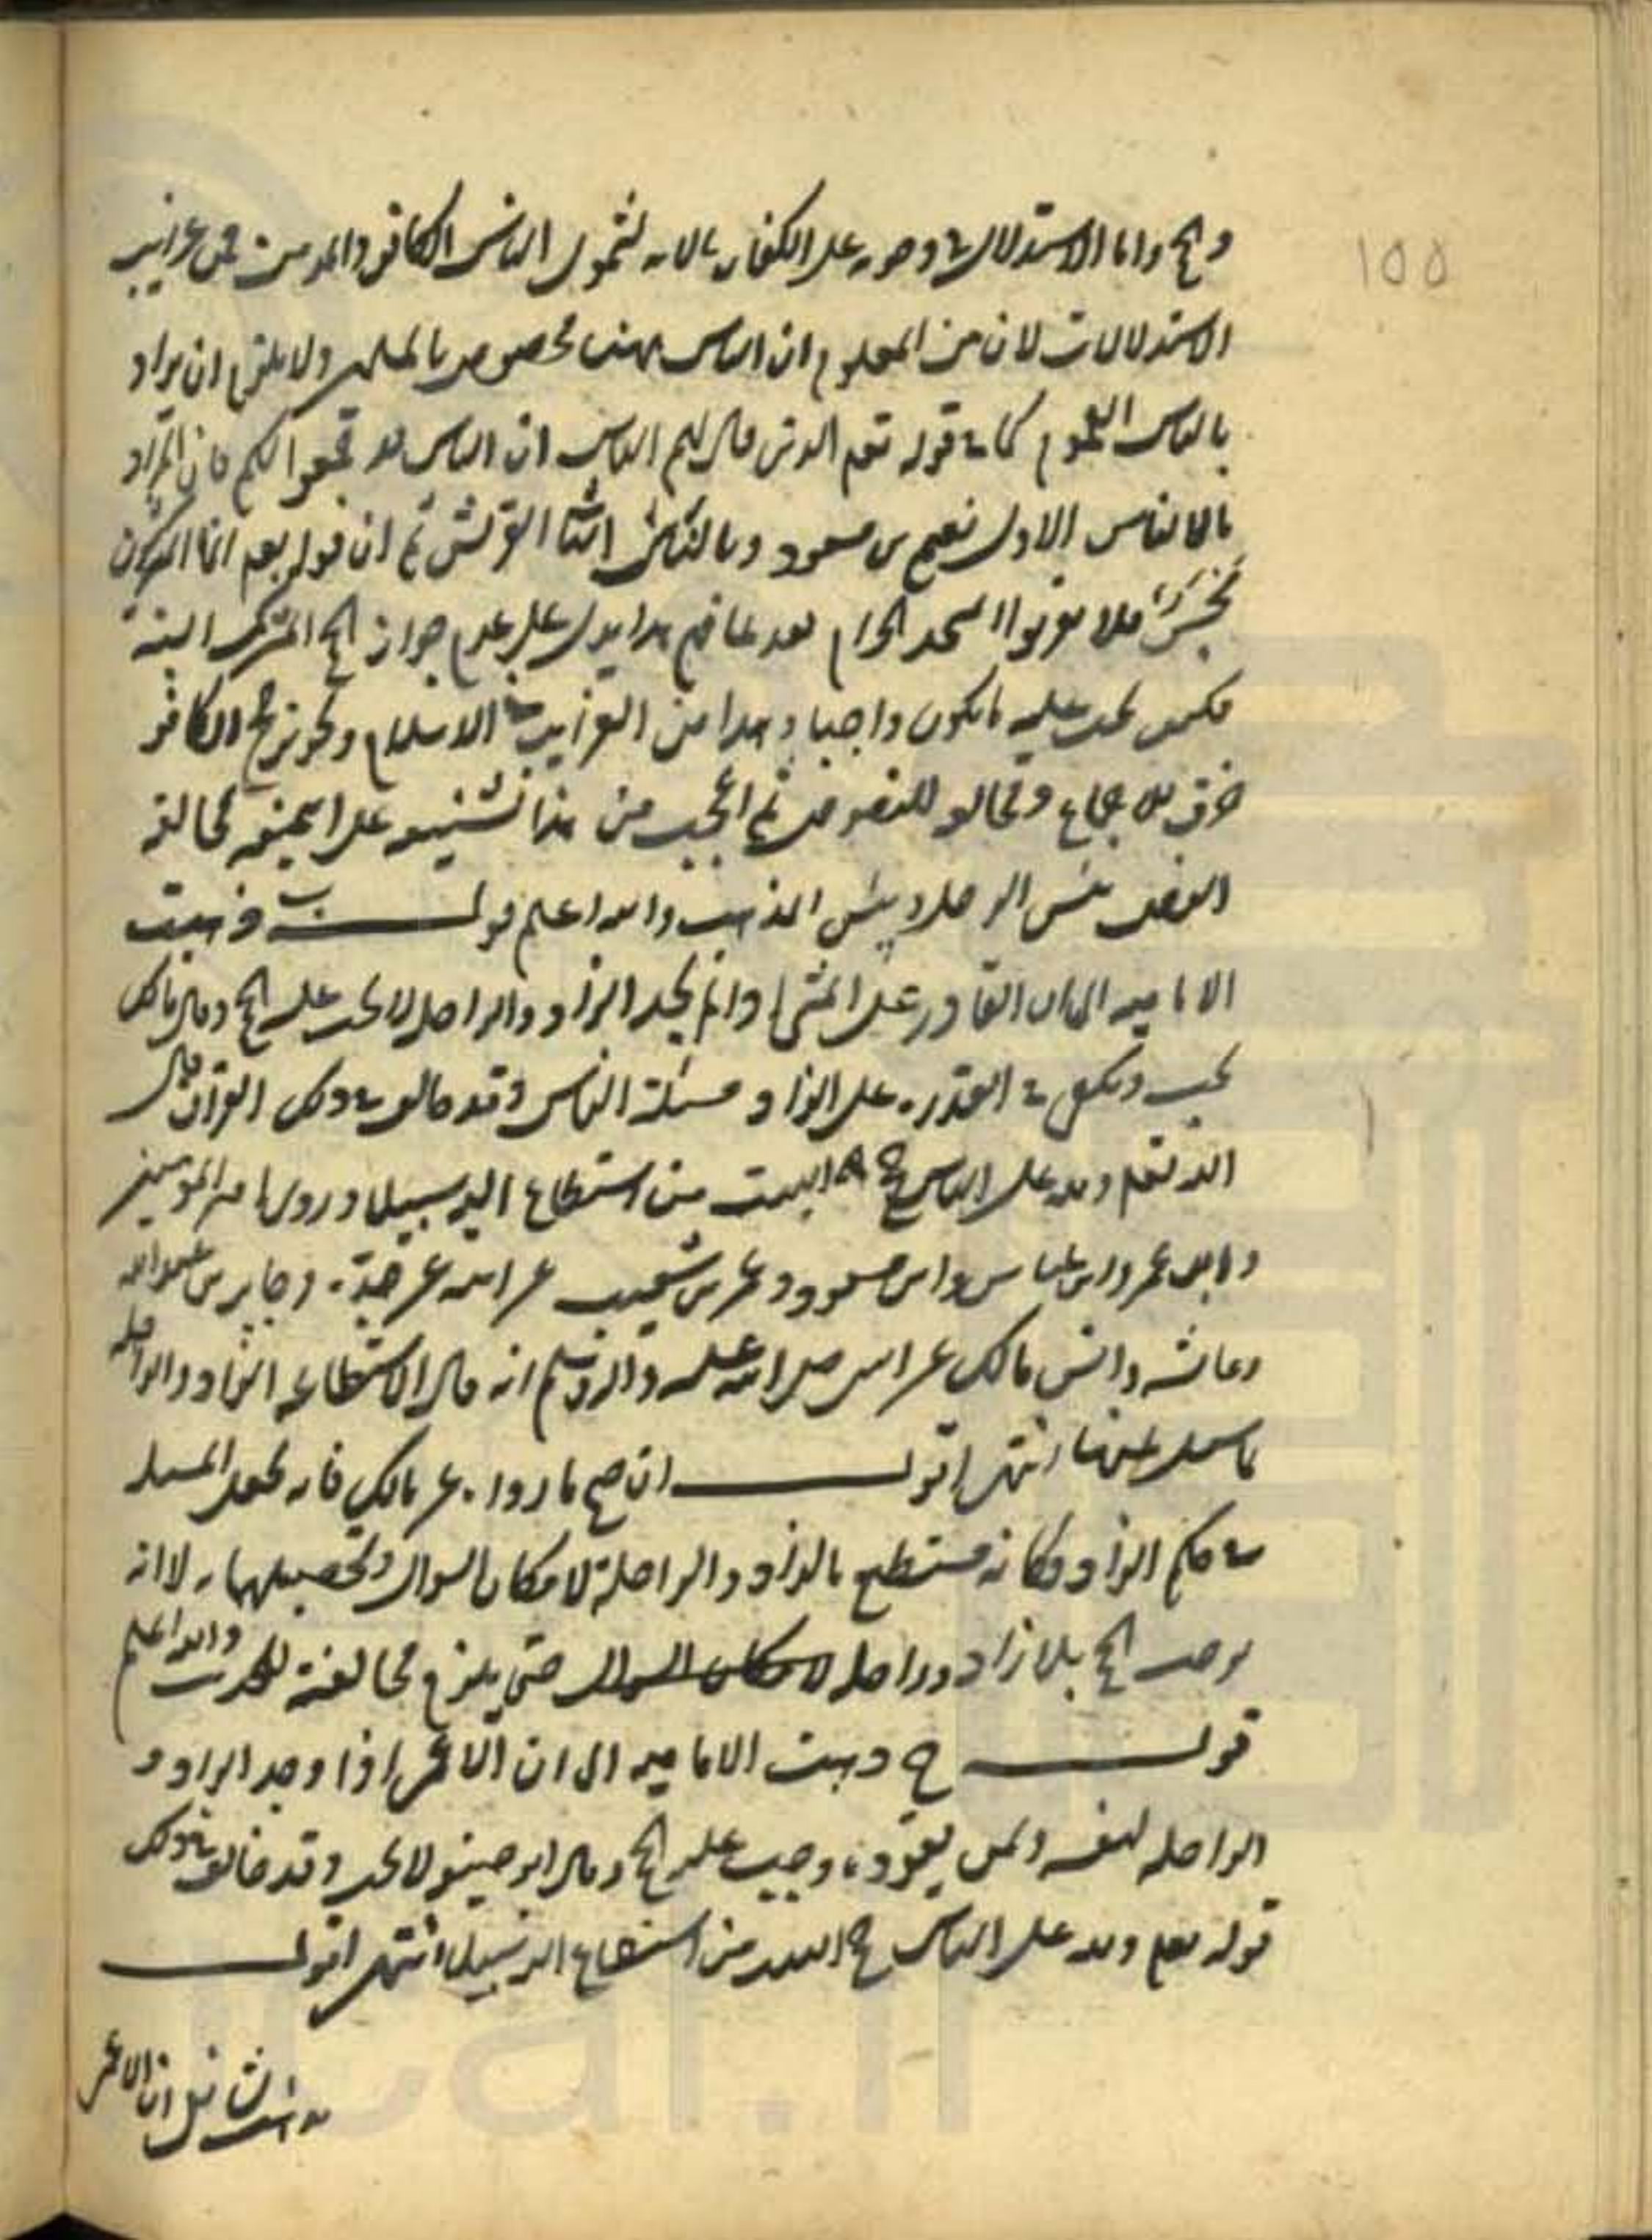 ١٥٥
والحج واما الاستدلال في وجوبه على الكفار بالايه لشمول الناس الكافر والمومن فمن غرايب
الاستدلالات لان من المعلوم ان الناس ههنا مخصوص بالمسلمين ولا يلزم ان يراد
بالناس العموم كما في قوله تعم الذين قال لهم الناس ان الناس قد جمعوا لكم فان المراد
بالناس الاول نعيم بن مسعود وبالناس الثاني القريش ثم ان قوله تعم انما المشركون
نجس فلا يقربوا المسجد الحرام بعد عامهم هذا يدل على عدم جواز الحج المشرك البتة
فكيف يجب عليه ما يكون واجبا وهذا من الغرايب في الاسلام وتجويز حج الكافر
خرق للاجماع ومخالف للنصوص ثم العجب من هذا تشنيعه على ابي حنيفة مخالفة
النص بئس الرجل وبئس المذهب والله اعلم قولـــه ب ذهبت
الاماميه الى ان القادر على المشي اذا لم يجد الزاد والراحله لا يجب عليه الحج وقال مالك
يجب ويكفي في القدره على الزاد مسئلة الناس وقد خالف في ذلك القران قال
الله تعم ولله على الناس حج البيت من استطاع اليه سبيلا وروى امير المومنين
وابن عمر وابن عباس وابن مسعود وعمر بن شعيب عن ابيه عن جده وجابر بن عبدالله
وعائشه وانس بن مالك عن النبي صلى الله عليه واله وسلم انه قال الاستطاعه الزاد والراحله
لما سئل عنها انتهى اقولـــ ان صح ما رواه عن مالك فانه يجعل المسئله
في حكم الزاد وكانه مستطيع بالزاد والراحلة لامكان السوال وتحصيلهما به لا انه
يوجب الحج بلا زاد وراحله لامكان السوال حتى يلزم مخالفته للحديث والله اعلم
قولـــه ج ذهبت الاماميه الى ان الاعمى اذا وجد الزاد و
الراحله لنفسه ولمن يقوده وجب عليه الحج وقال ابو حنيفه لا يجب وقد خالف في ذلك
قوله تعم ولله على الناس حج البيت من استطاع اليه سبيلا انتهى اقولـــ
ان الاعمى